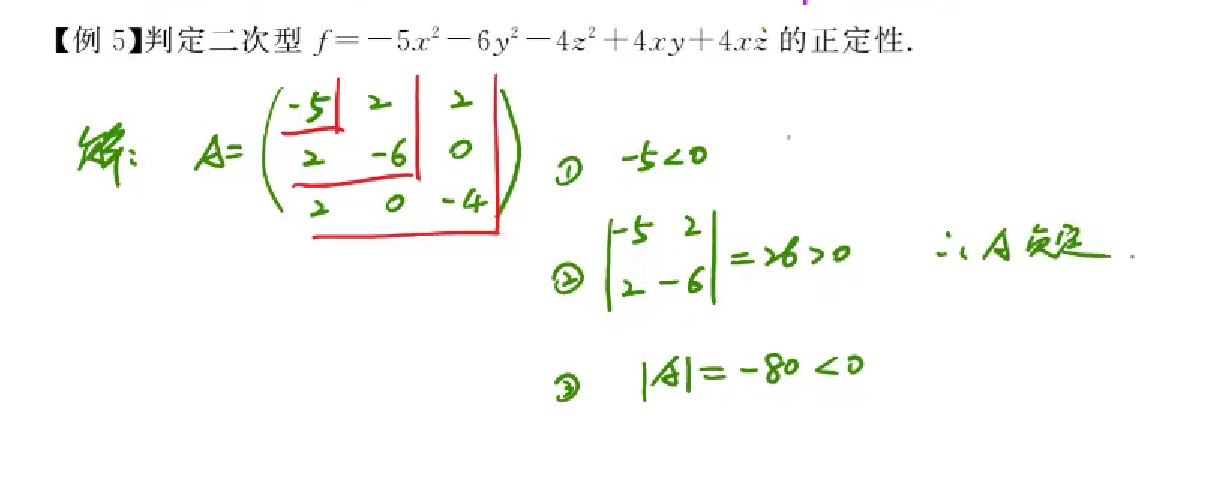 【例 5】判定二次型 f=-5x²-6y²-4z²+4xy+4xz 的正定性.
解: A= ( -5 2 2
2 -6 0
2 0 -4 )
① -5<0
② |-5 2
2 -6| =26>0 ∴ A 负定.
③ |A|=-80<0